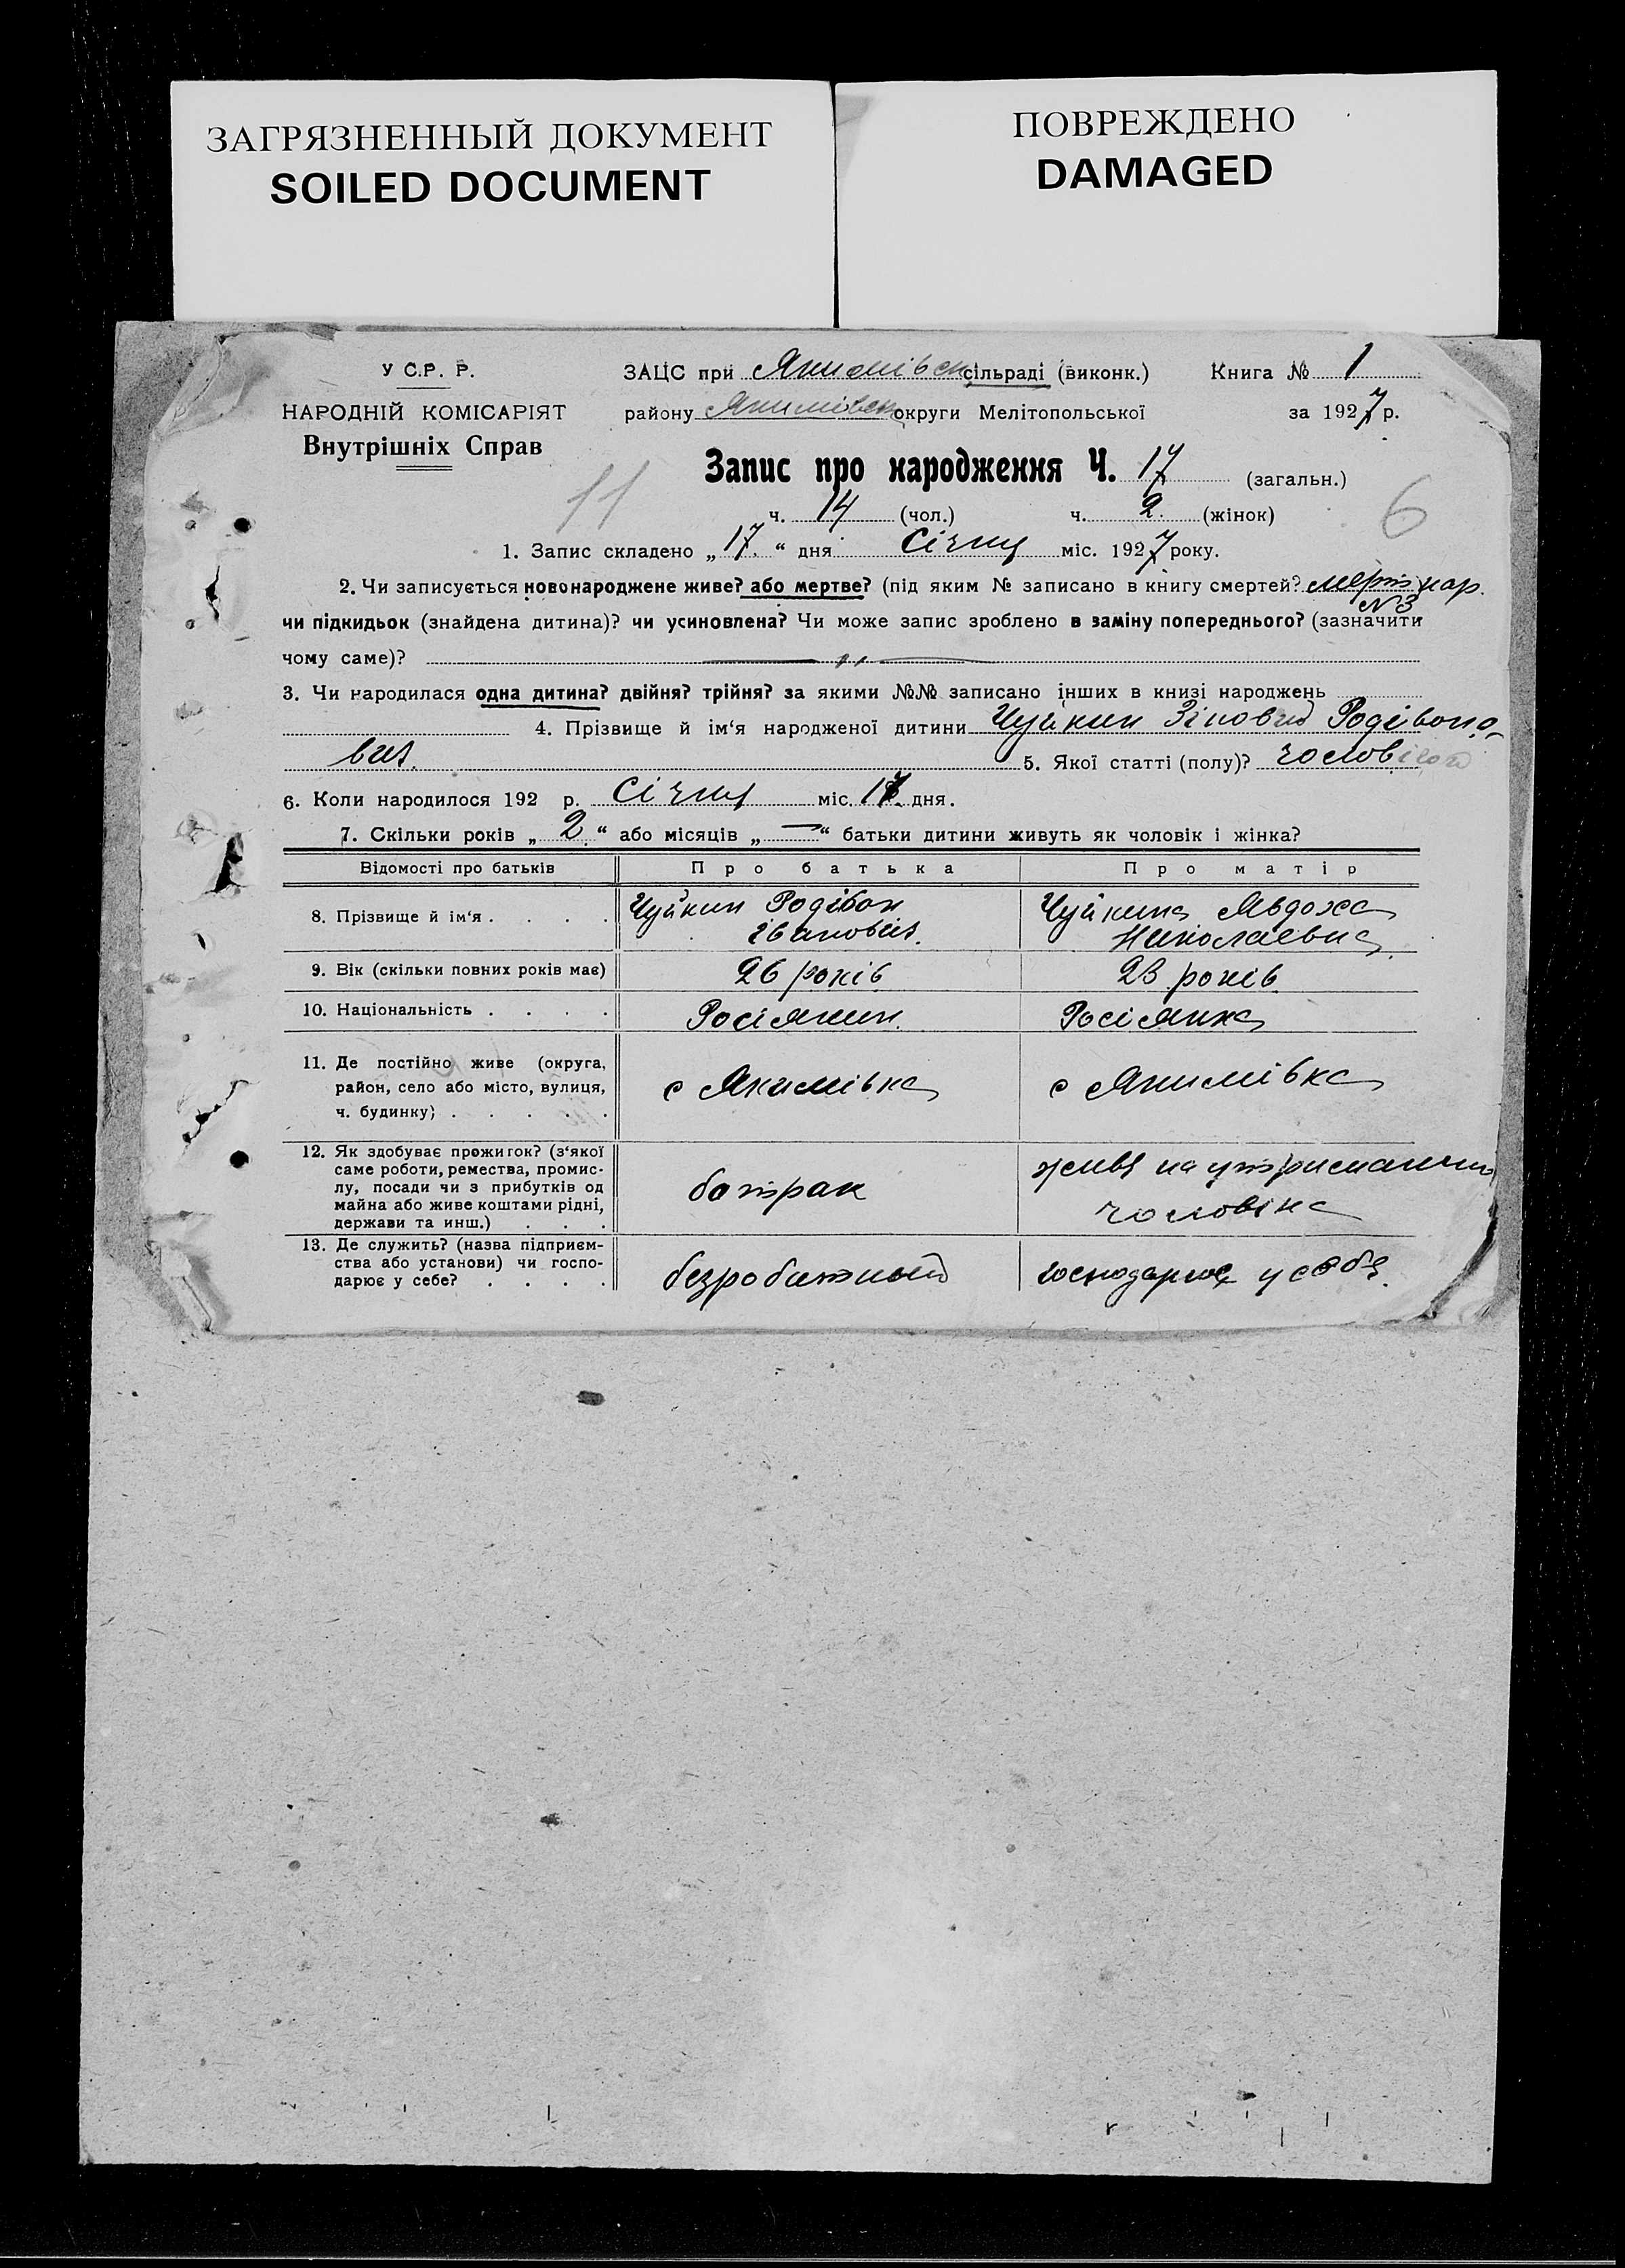 ЗАГРЯЗНЕННЫЙ ДОКУМЕНТ
SOILED DOCUMENT
ПОВРЕЖДЕНО
DAMAGED
У С.Р. Р.
НАРОДНІЙ КОМІСАРІЯТ
Внутрішніх Справ
ЗАЦС при Якимівськ сільраді (виконк.) Книга № 1
району Якимівськ округи Мелітопольської за 1927 р.
Запис про народження Ч. 17 (загальн.)
11
6
ч. 14 (чол.) ч. 2. (жінок)
1. Запис складено „17.“ дня Січня міс. 1927 року.
2. Чи записується новонароджене живе? або мертве? (під яким № записано в книгу смертей? мертв нар.
N 3
чи підкидьок (знайдена дитина)? чи усиновлена? Чи може запис зроблено в заміну попереднього? (зазначити
чому саме)? — „ —
3. Чи народилася одна дитина? двійня? трійня? за якими №№ записано інших в книзі народжень
4. Прізвище й ім‘я народженої дитини Чуйкин Зіновид Родівоно-
вич. 5. Якої статті (полу)? чоловічой
6. Коли народилося 192 р. Січня міс. 17. дня.
7. Скільки років „2“ або місяців „—“ батьки дитини живуть як чоловік і жінка?
Відомості про батьків Про батька Про матір
8. Прізвище й ім‘я . . . . Чуйкин Родівон Іванович. Чуйкина Явдоха Николаевна
9. Вік (скільки повних років має) 26 років 23 років
10. Національність . . . . Росіянин. Росіянка
11. Де постійно живе (округа,
район, село або місто, вулиця,
ч. будинку) . . . . . с Якимівка с Якимівка
12. Як здобуває прожиток? (з‘якої
саме роботи, ремества, промис-
лу, посади чи з прибутків од
майна або живе коштами рідні,
держави та инш.) . . . батрак живе на утриманни чоловіка
13. Де служить? (назва підприєм-
ства або установи) чи госпо-
дарює у себе? . . . . безроботный господарює у себе.